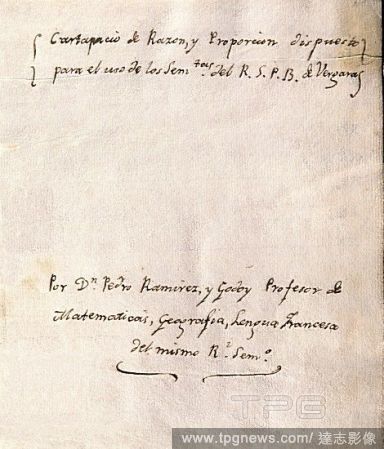 Cartapacio de Razon, y Proporcion dispuesto
para el uso de los Sem.tas del R. S. P. B. de Vergara
Por Dn. Pedro Ramirez, y Godoy Profesor de
Matematicas, Geografia, Lengua Francesa
del mismo Rl. Semo.
TPG
www.tpgnews.com/達志影像